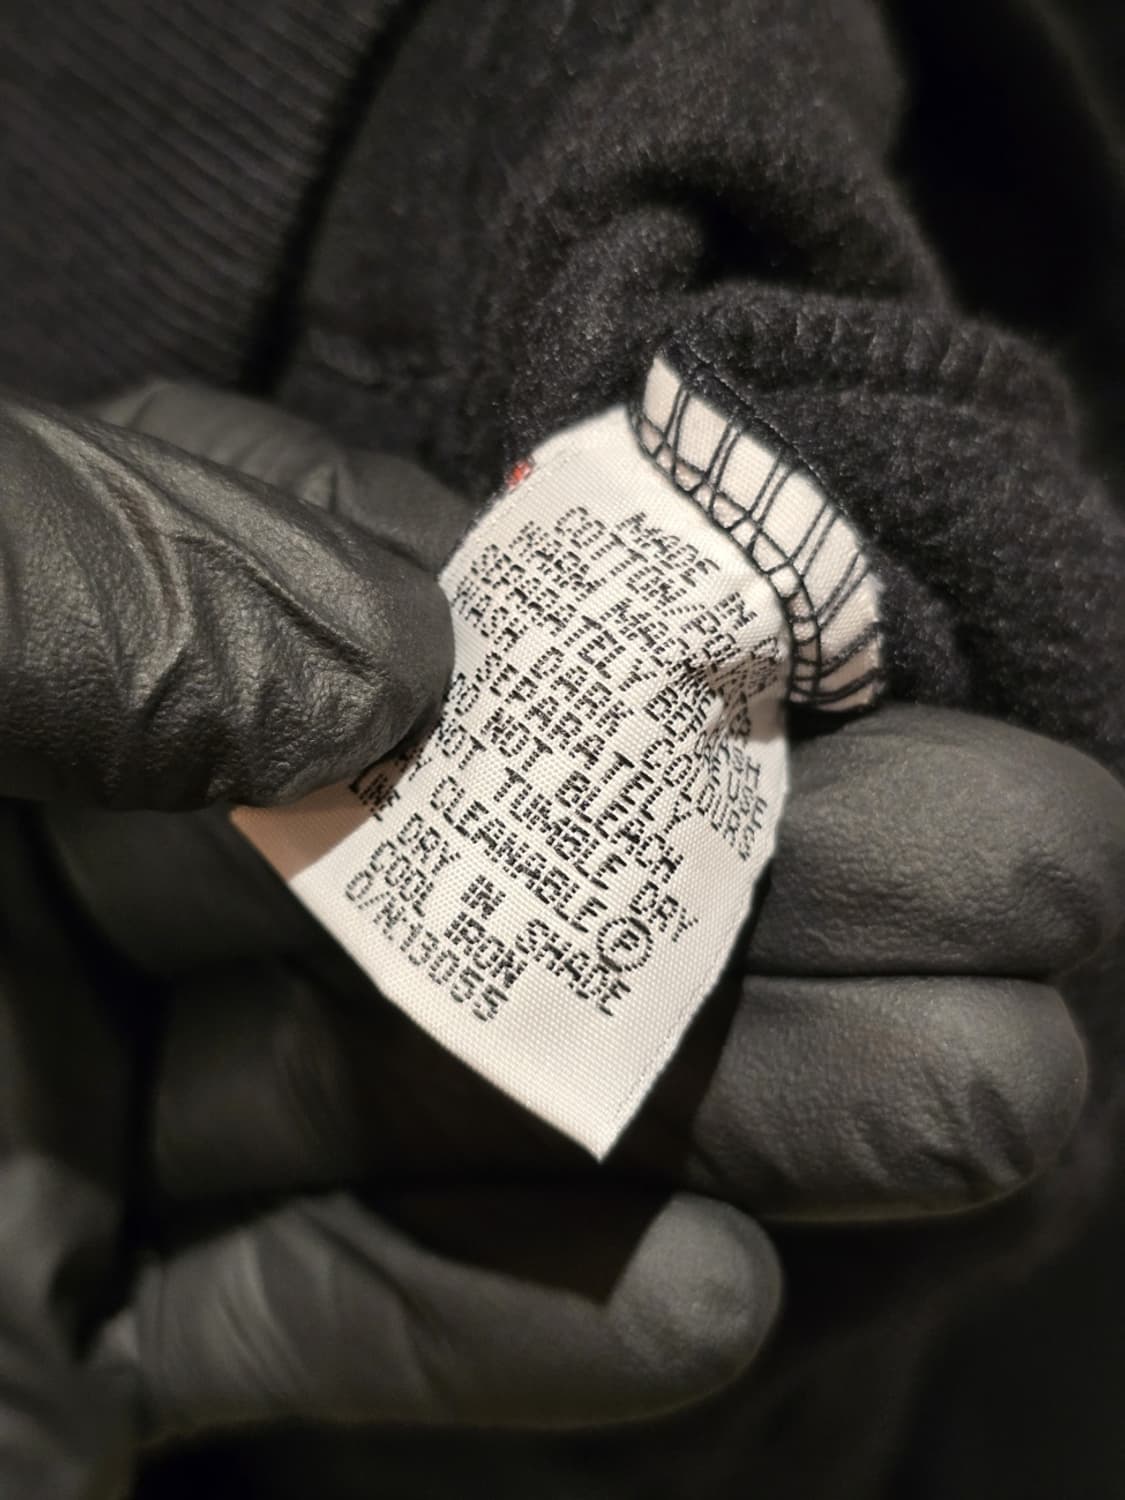 MADE IN
COTTON/POLY
WARM MACHINE WASH
SEPARATELY BEFORE USE
WASH DARK COLOURS
SEPARATELY
DO NOT BLEACH
NOT TUMBLE DRY
CLEANABLE Ⓟ
LINE DRY IN SHADE
COOL IRON
O/N:13055